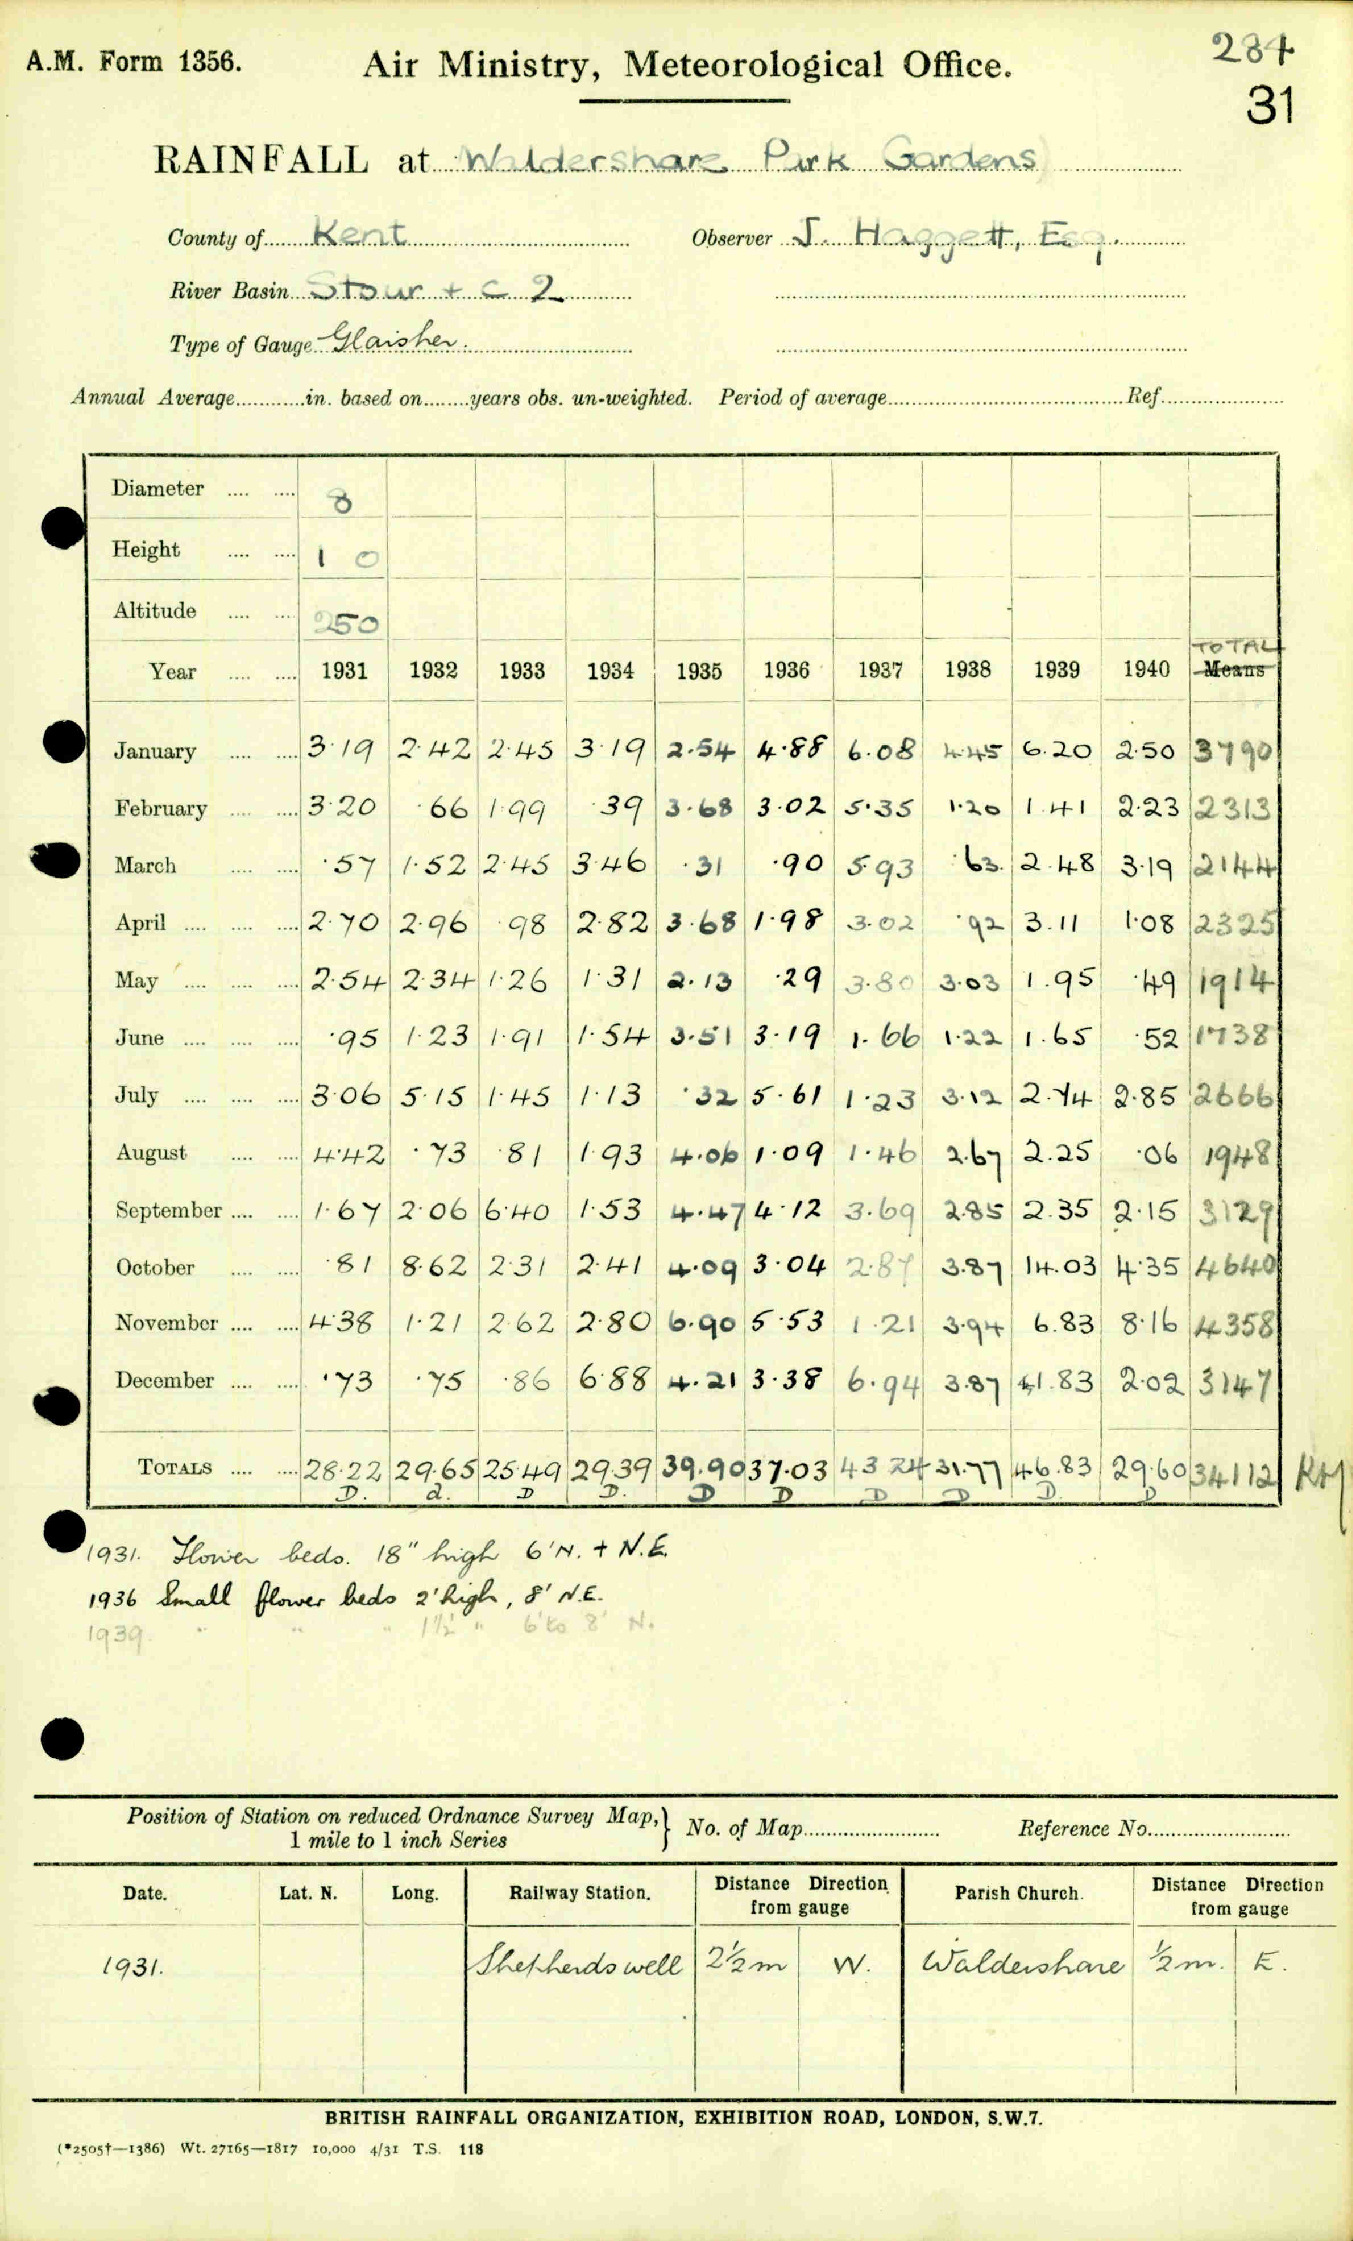 A.M. Form 1356.
Air Ministry, Meteorological Office.
284
31
RAINFALL at Waldershare Park Gardens
County of Kent Observer J. Haggett, Esq.
River Basin Stour + C 2
Type of Gauge Glaisher.
Annual Average in. based on years obs. un-weighted. Period of average Ref.
Diameter 8
Height 1 0
Altitude 250
TOTAL
Year 1931 1932 1933 1934 1935 1936 1937 1938 1939 1940 Means
January 3·19 2·42 2·45 3·19 2·54 4·88 6·08 4·45 6.20 2·50 3790
February 3·20 ·66 1·99 ·39 3·68 3·02 5·35 1·20 1·41 2·23 2313
March ·57 1·52 2·45 3·46 ·31 ·90 5·93 ·63 2·48 3·19 2144
April 2·70 2·96 ·98 2·82 3·68 1·98 3·02 ·92 3.11 1·08 2325
May 2·54 2·34 1·26 1·31 2·13 ·29 3·80 3·03 1.95 ·49 1914
June ·95 1·23 1·91 1·54 3·51 3·19 1·66 1·22 1.65 ·52 1738
July 3·06 5·15 1·45 1·13 ·32 5·61 1·23 3·12 2.74 2·85 2666
August 4·42 ·73 ·81 1·93 4·06 1·09 1·46 2·67 2.25 ·06 1948
September 1·67 2·06 6·40 1·53 4·47 4·12 3·69 2·85 2.35 2·15 3129
October ·81 8·62 2·31 2·41 4·09 3·04 2·87 3·87 14.03 4·35 4640
November 4·38 1·21 2·62 2·80 6·90 5·53 1·21 3·94 6.83 8·16 4358
December ·73 ·75 ·86 6·88 4·21 3·38 6·94 3·87 1.83 2·02 3147
TOTALS 28·22 29·65 25·49 29·39 39·90 37·03 43·24 31·77 46.83 29·60 34112
D. d. D D. D D D D D. D
1931. Flower beds. 18" high 6' N. + N.E.
1936 Small flower beds 2' high, 8' N.E.
1939. " " " 1½ " 6' to 8' N.
Position of Station on reduced Ordnance Survey Map, 1 mile to 1 inch Series No. of Map Reference No.
Date. Lat. N. Long. Railway Station. Distance Direction from gauge Parish Church. Distance Direction from gauge
1931. Shepherdswell 2½ m W. Waldershare ½ m. E.
BRITISH RAINFALL ORGANIZATION, EXHIBITION ROAD, LONDON, S.W.7.
(*2505†—1386) Wt. 27165—1817 10,000 4/31 T.S. 118